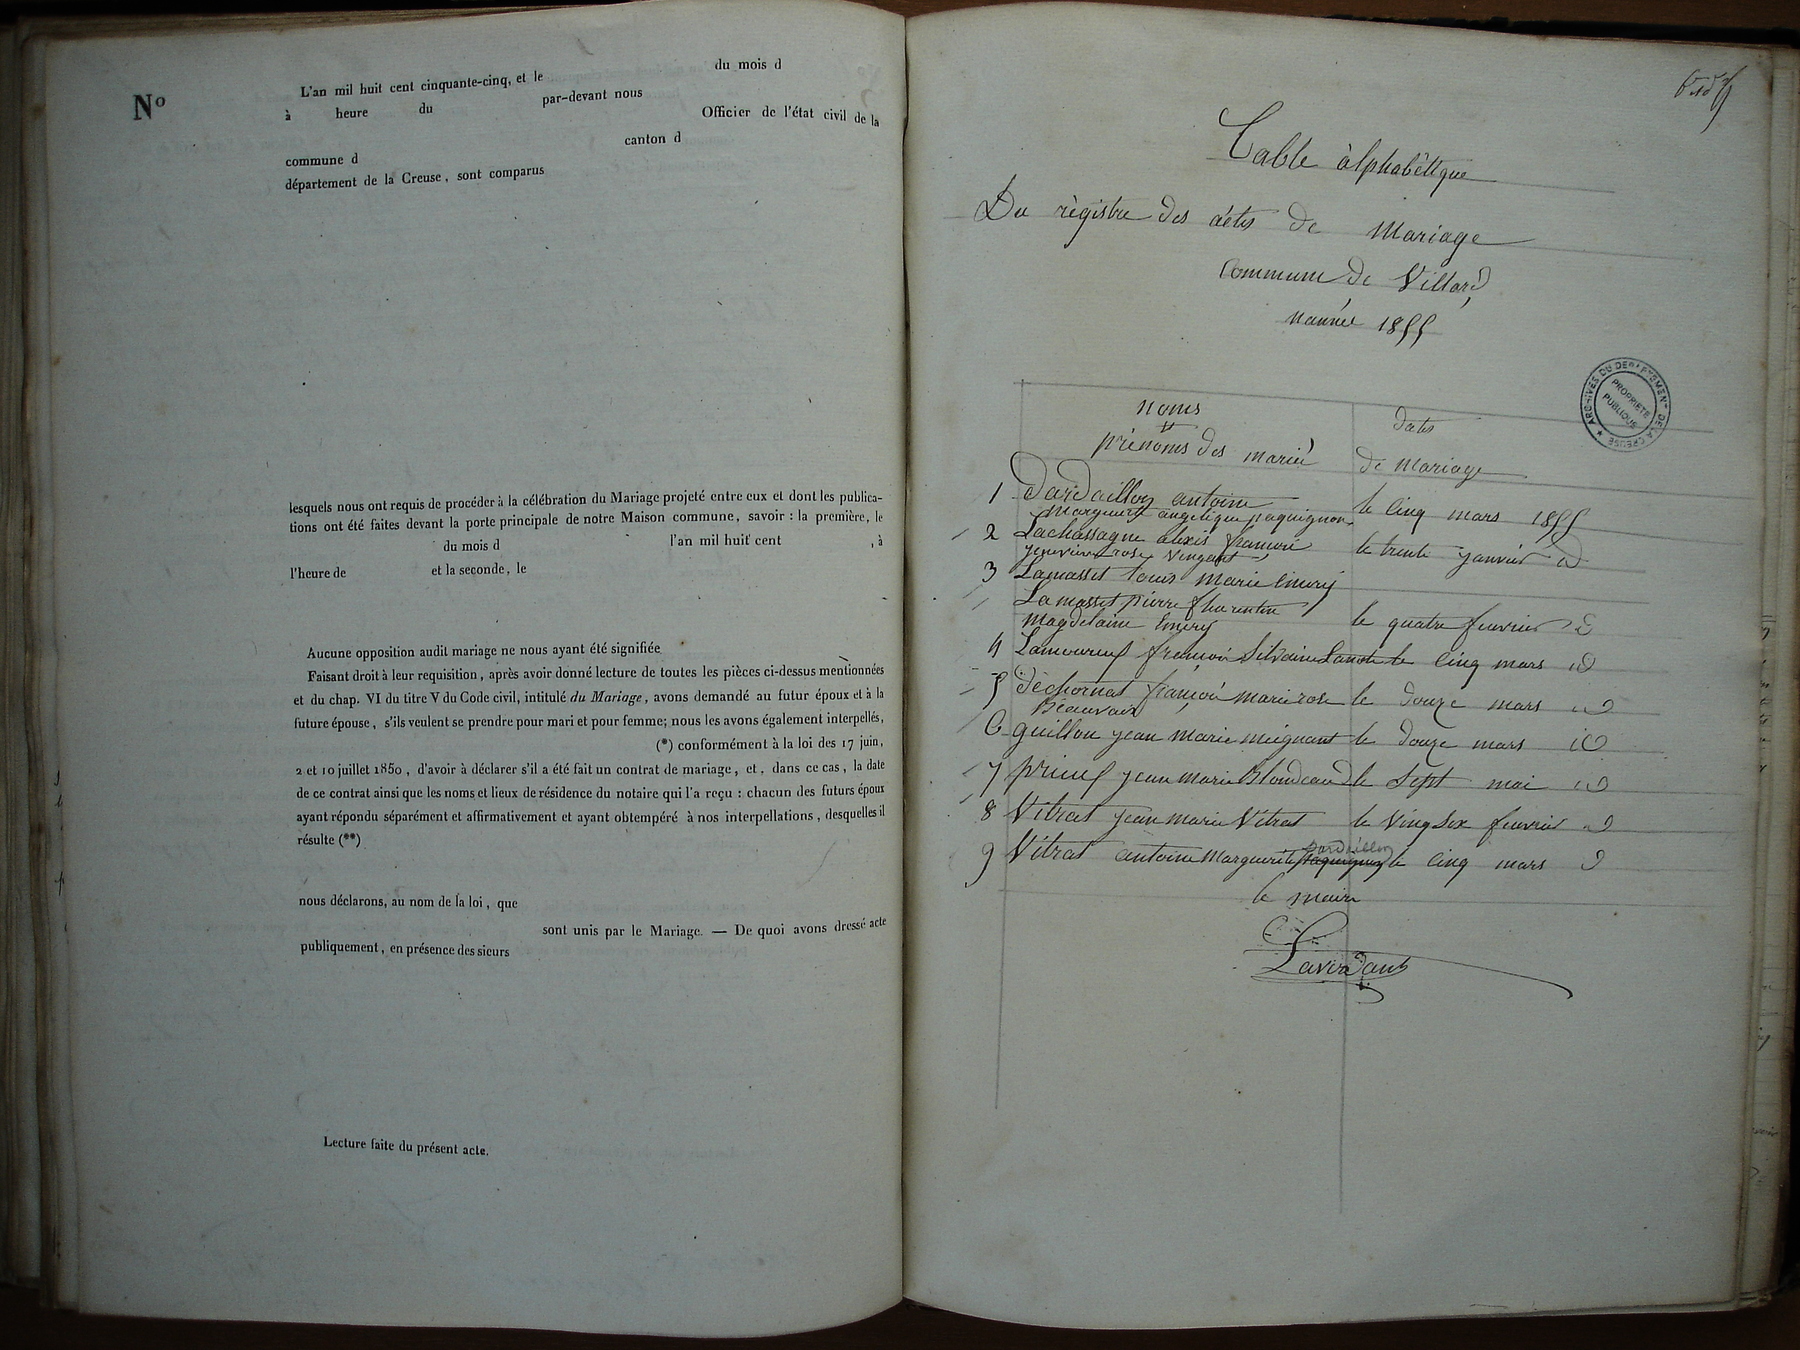 Nº
L'an mil huit cent cinquante-cinq, et le du mois d
à heure du par-devant nous
Officier de l'état civil de la
commune d canton d
département de la Creuse, sont comparus
lesquels nous ont requis de procéder à la célébration du Mariage projeté entre eux et dont les publica-
tions ont été faites devant la porte principale de notre Maison commune, savoir : la première, le
du mois d l'an mil huit cent , à
l'heure de et la seconde, le
Aucune opposition audit mariage ne nous ayant été signifiée
Faisant droit à leur requisition, après avoir donné lecture de toutes les pièces ci-dessus mentionnées
et du chap. VI du titre V du Code civil, intitulé du Mariage, avons demandé au futur époux et à la
future épouse, s'ils veulent se prendre pour mari et pour femme; nous les avons également interpellés,
(*) conformément à la loi des 17 juin,
2 et 10 juillet 1850, d'avoir à déclarer s'il a été fait un contrat de mariage, et, dans ce cas, la date
de ce contrat ainsi que les noms et lieux de résidence du notaire qui l'a reçu : chacun des futurs époux
ayant répondu séparément et affirmativement et ayant obtempéré à nos interpellations, desquelles il
résulte (**)
nous déclarons, au nom de la loi, que
sont unis par le Mariage. — De quoi avons dressé acte
publiquement, en présence des sieurs
Lecture faite du présent acte.
Table àlphabètique
Du règistre des actes de Mariage
Commune de Villard
1855
ARCHIVES DU DEPARTEMENT DE LA CREUSE
PROPRIETE PUBLIQUE
noms dates
prénoms des marié de mariage
1 Dardaillon antoine
Marguerite angelique paquignon le cinq mars 1855
2 Lachassagne alexis françois
rose Vingant le trente janvier id
3 Lamasset louis marie Emery
Lamasset pierre florentin
Magdelaine Emery le quatre feuvrier id
4 Lamoureux françois Silvaine Lanote le cinq mars id
5 Déchornat françois marie rose le douze mars id
Beauvais
6 guillon jean marie meignant le douze mars id
7 prieux jean marie Blondeaud le Sept mai id
8 Vitrat jean marie Vitrat le Vingsix feuvrier id
9 Vitrat antoine Marguerite paquignon Dardaillon le cinq mars id
le maire
Laverdant